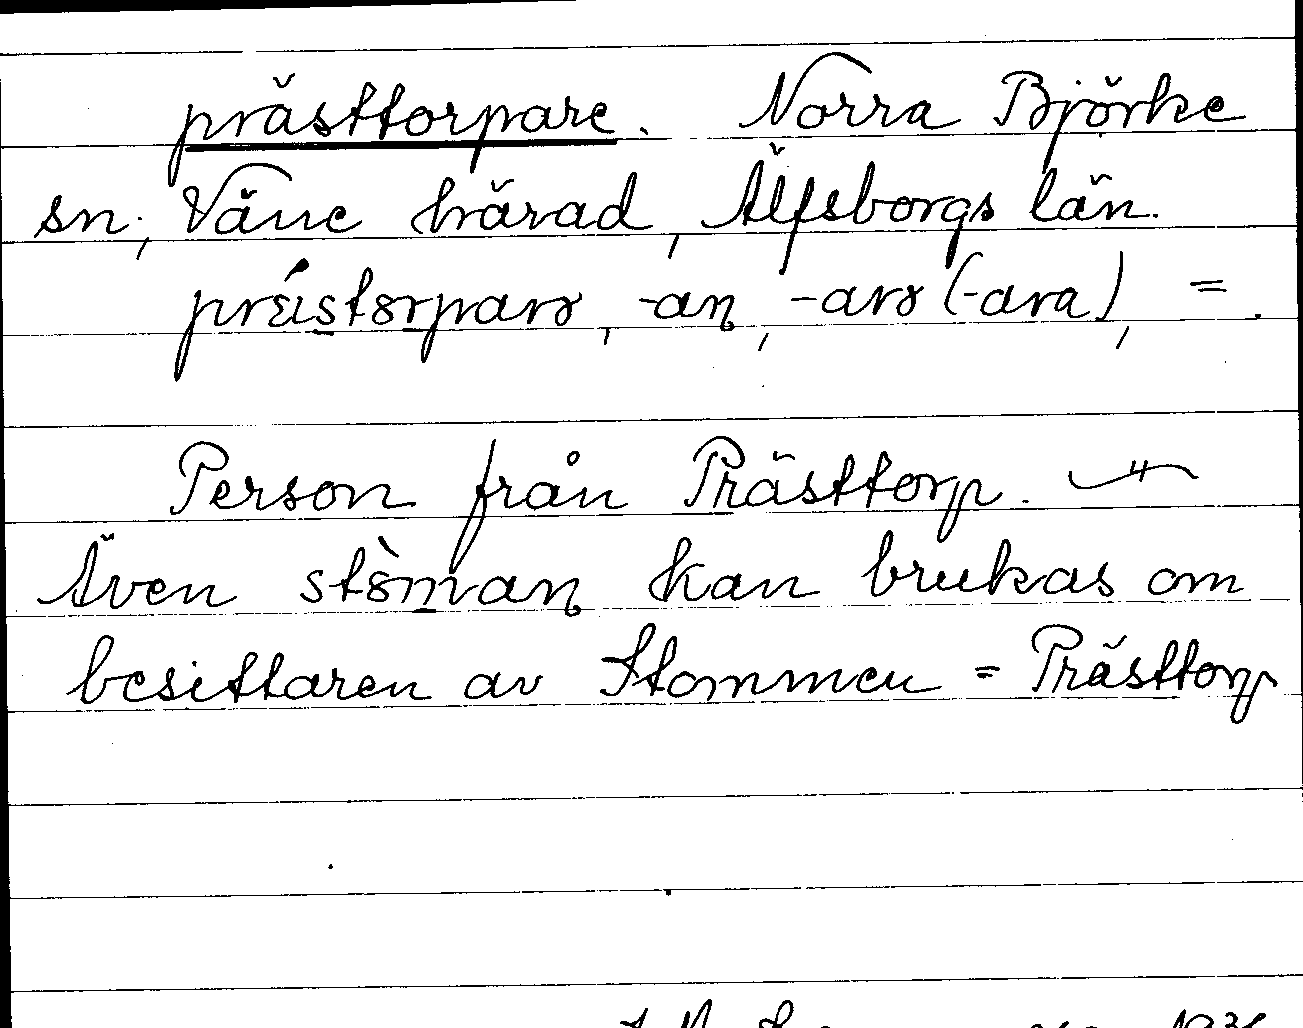 prästtorpare. Norra Björke
sn, Väne härad, Älfsborgs län.
präistɷrparɷ, -aņ, -arɷ (-ara), =.
Person från Prästtorp.
Även stɷ̀m̱an kan brukas om
besittaren av Stommen = Prästtorp